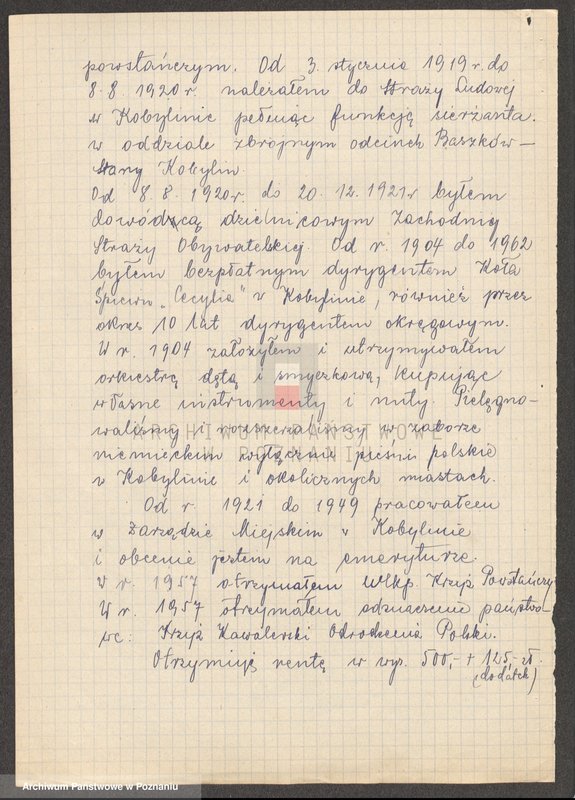 powstańczym. Od 3. stycznia 1919 r. do
8.8.1920 r. należałem do Straży Ludowej
w Kobylinie pełniąc funkcję sierżanta.
w oddziale zbrojnym odcinek Baszków –
Stany Kobylin.
Od 8.8.1920r. do 20.12.1921r byłem
dowódzcą dzielnicowym Zachodniej
Straży Obywatelskiej. Od r. 1904 do 1962
byłem bezpłatnym dyrygentem Koła
Śpiewu „Cecylia" w Kobylinie, również przez
okres 10 lat dyrygentem okręgowym.
W r. 1904 założyłem i utrzymywałem
orkiestrę dętą i smyczkową, kupując
własne instrumenty i nuty. Pielęgno-
waliśmy i rozszerzaliśmy w zaborze
niemieckim wyłącznie pieśni polskie
w Kobylinie i okolicznych miastach.
Od r 1921 do 1949 pracowałem
w Zarządzie Miejskim w Kobylinie
i obecnie jestem na emeryturze.
W r. 1957 otrzymałem Wlkp. Krzyż Powstańczy
W r. 1957 otrzymałem odznaczenie państwo-
we: Krzyż Kawalerski Odrodzenia Polski.
Otrzymuję rentę w wys. 500,- + 125,- zł.
(dodatek)
ARCHIWUM PAŃSTWOWE
W POZNANIU
Archiwum Państwowe w Poznaniu